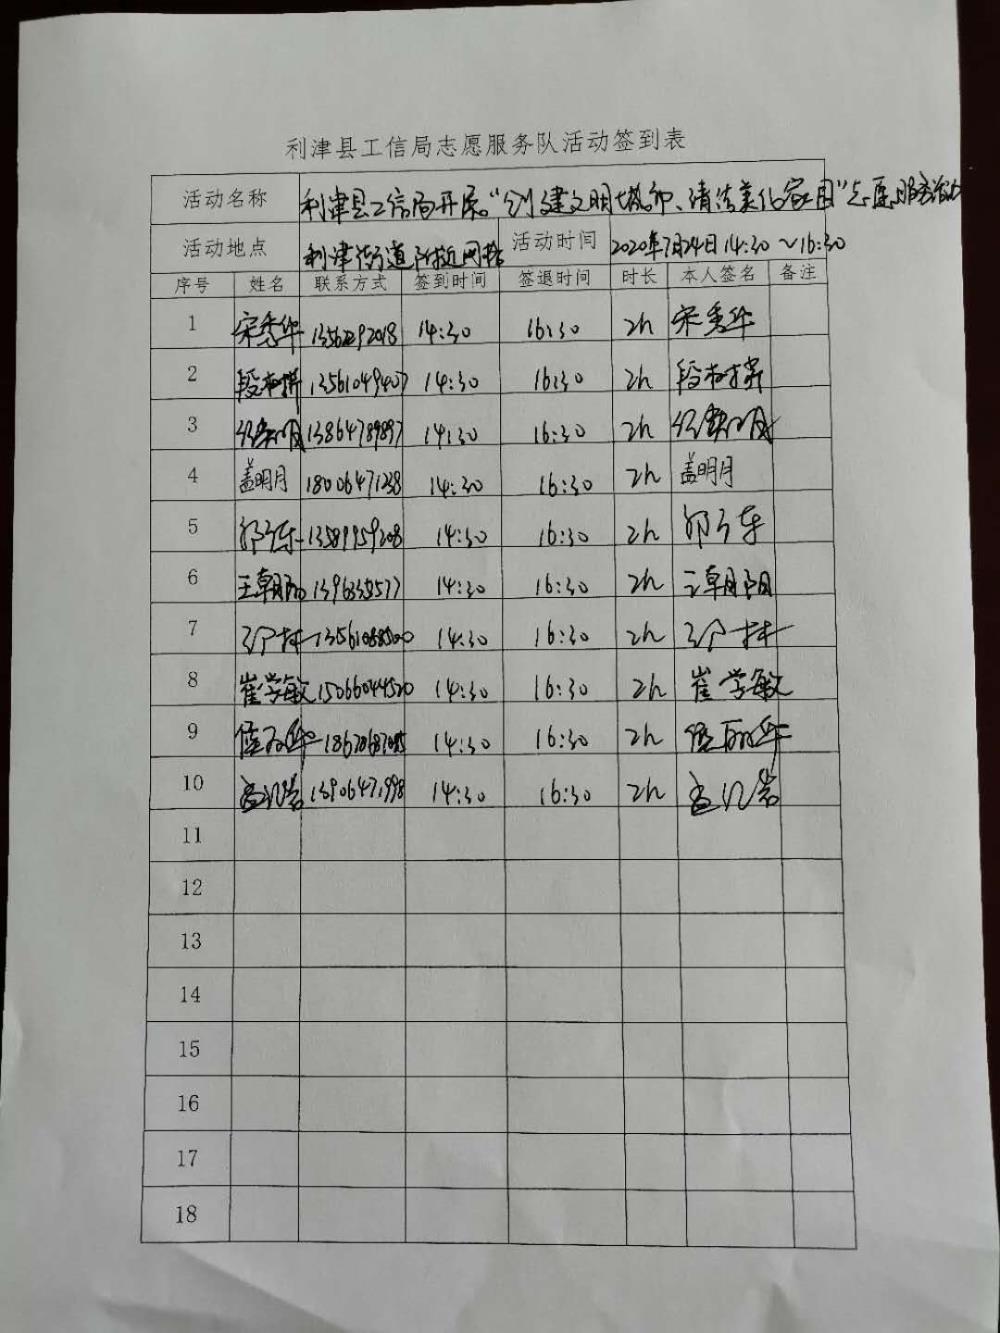 利津县工信局志愿服务队活动签到表
活动名称 利津县工信局开展“创建文明城市、清洁美化家园”志愿服务活动
活动地点 利津街道附近网格 活动时间 2020年7月24日14:30～16:30
序号 姓名 联系方式 签到时间 签退时间 时长 本人签名 备注
1 宋秀华 14:30 16:30 2h 宋秀华
2 13561049407 14:30 16:30 2h
3 13864789897 14:30 16:30 2h
4 盖明月 18006471238 14:30 16:30 2h 盖明月
5 13589959208 14:30 16:30 2h
6 王朝阳 14:30 16:30 2h 王朝阳
7 14:30 16:30 2h
8 崔学敏 15066044520 14:30 16:30 2h 崔学敏
9 14:30 16:30 2h
10 13906471998 14:30 16:30 2h
11
12
13
14
15
16
17
18